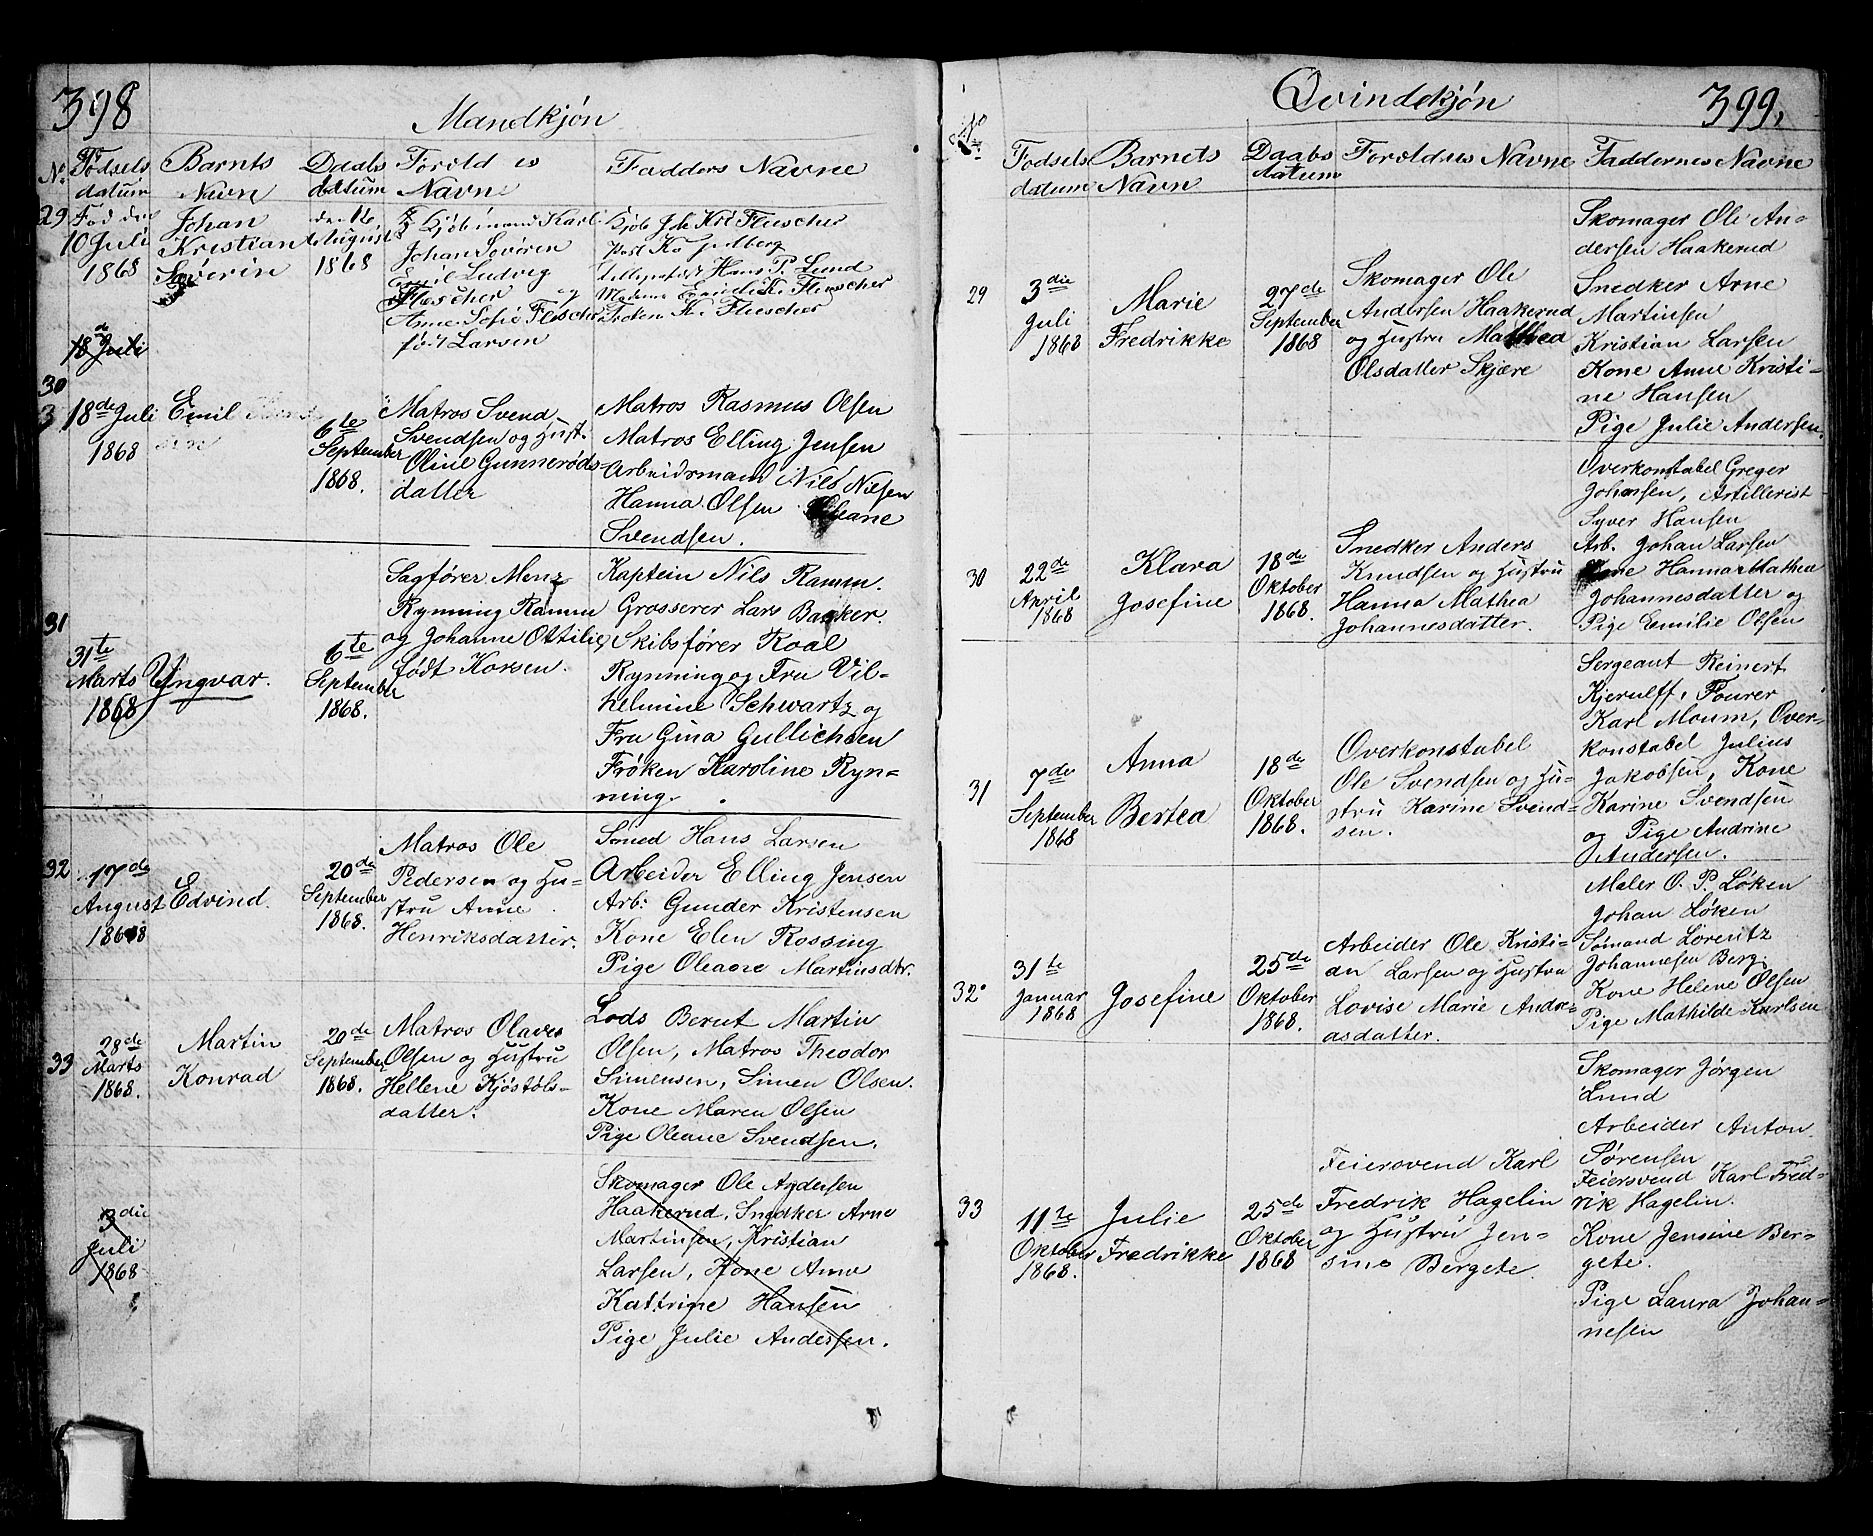 398
Mandkjøn
No Fødsels datum
Barnets Navn
Daabs datum
Navne
Fadders Navne
29
Fød den
10 Juli
1868
Johan
Kristian
Severin
den 16
August
1868
Kjøbmand Karl
Johan Severin
Emil Ludvig
Fleischer og
Anne Sofie Fleischer
født Larsen
Kjøb Joh Kr Fleischer
Hans P. Lund
Madame Emilie K. Fleischer
Frøken K. Fleischer
18de Juli
30
3
18de Juli
1868
Emil
6te
September
1868.
Matros Svend
Svendsen og Hust.
Oline Gunnerøds-
datter
Matros Rasmus Olsen
Matros Elling Jensen
Arbeidsmand Nils Nilsen
Hanna Olsen Oleane
Svendsen.
31
31te
Marts
1868
Yngvar.
6te
September
1868.
Sagfører Menz
Rynning Ramm
og Johanne Ottilie,
født Korsen.
Kaptein Nils Ramm.
Grosserer Lars Backer.
Skibsfører Roal
Rynning og Fru Vil-
helmine Schwartz og
Fru Gina Gullichsen
Frøken Karoline Ryn-
ning.
32
17de
August
1868
Edvind.
20de
September
1868.
Matros Ole
Pedersen og Hu-
stru Anne
Henriksdatter.
Smed Hans Larsen
Arbeider Elling Jensen
Arb: Gunder Kristensen
Kone Elen Rossing
Pige Oleane Martinsdtr.
33
28de
Marts
1868.
Martin
Konrad
20de
September
1868.
Matros Olaves
Olsen og Hustru
Hellene Kjøstøls-
datter.
Lods Bernt Martin
Olsen, Matros Theodor
Simensen, Simen Olsen.
Kone Maren Olsen
Pige Oleane Svendsen.
3die
Juli
1868
Skomager Ole Andersen
Haakerud, Snedker Arne
Martinsen, Kristian
Larsen, Kone Anne
Kattrine Hansen
Pige Julie Andersen.
Qvindekjøn
399.
No
Fødsels datum
Barnets Navn
Daabs datum
Forældres Navne
Faddernes Navne
29
3die
Juli
1868
Marie
Fredrikke
27de
September
1868
Skomager Ole
Andersen Haakerud
og Hustru Mathea
Olsdatter Skjære
Skomager Ole An-
dersen Haakerud
Snedker Arne
Martinsen
Kristian Larsen
Kone Anne Kristi-
ne Hansen
Pige Julie Andersen.
30
22de
April
1868
Klara
Josefine
18de
Oktober
1868.
Snedker Anders
Knudsen og Hustru
Hanna Mathea
Johannesdatter.
Overkonstabel Greger
Johansen, Artillerist
Syver Hansen
Arb. Johan Larsen
Kone Hanna Mathea
Johannesdatter og
Pige Emilie Olsen
31
7de
September
1868
Anna
Bertea
18de
Oktober
1868.
Overkonstabel
Ole Svendsen og Hu-
stru Karine Svend-
sen.
Sergeant Reinert
Kjerulff, Fourer
Karl Moum, Over-
konstabel Julius
Jakobsen, Kone
Karine Svendsen
og Pige Andrine
Andersen.
32
31te
Januar
1868
Josefine
25de
Oktober
1868.
Arbeider Ole Kristi-
an Larsen og Hustru
Lovise Marie Andre-
asdatter.
Maler O. P. Løken
Johan Løken
Sømand Lorentz
Johannesen Berg.
Kone Helene Olsen
Pige Mathilde Karlsen
33
11te
Oktober
1868.
Julie
Fredrikke
25de
Oktober
1868
Feiersvend Karl
Fredrik Hagelin
og Hustru Jen-
sine Bergete.
Skomager Jørgen
Lund
Arbeider Anton
Sørensen
Feiersvend Karl Fred-
rik Hagelin.
Kone Jensine Ber-
gete.
Pige Laura Johan-
nesen